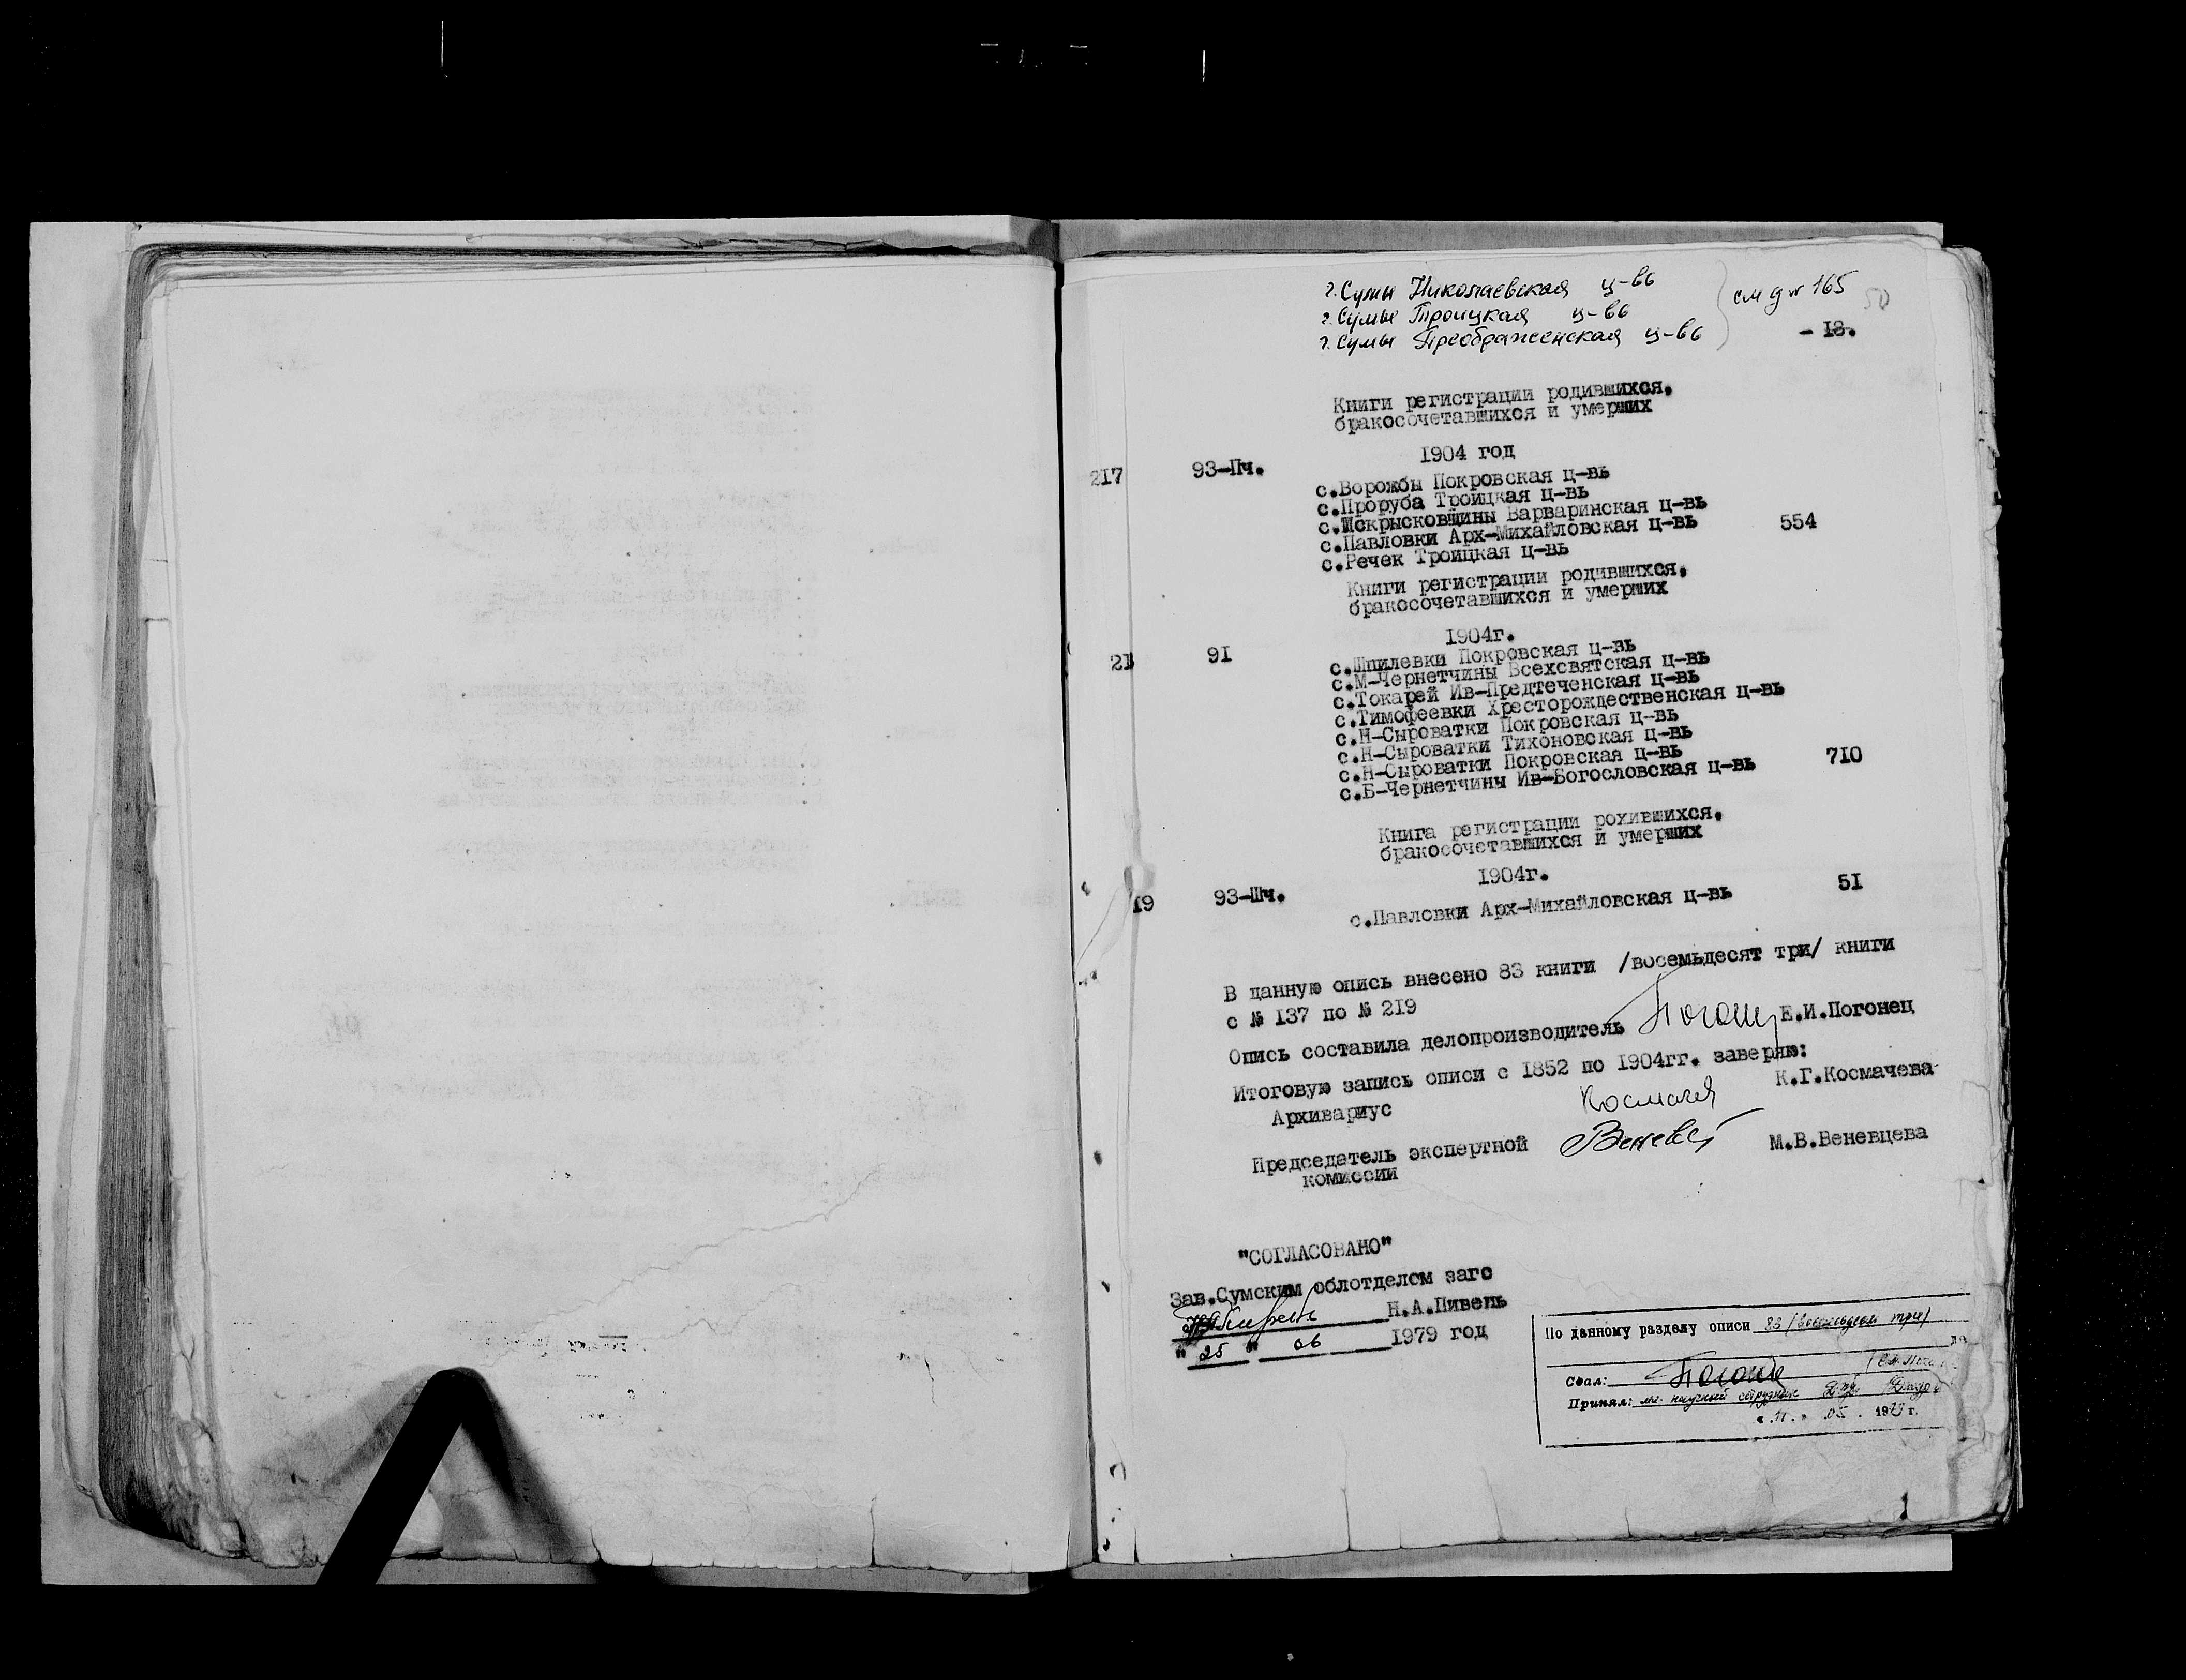 г.Сумы Николаевская ц-вь
г.Сумы Троицкая ц-вь
г.Сумы Преображенская ц-вь
см д № 165
50
- 18.
Книги регистрации родившихся,
бракосочетавшихся и умерших
1904 год
217 93-Пч.
с.Ворожбы Покровская ц-вь
с.Проруба Троицкая ц-вь
с.Искрысковщины Варваринская ц-вь
с.Павловки Арх-Михайловская ц-вь 554
с.Речек Троицкая ц-вь
Книги регистрации родившихся,
бракосочетавшихся и умерших
1904г.
21 91
с.Шпилевки Покровская ц-вь
с.М-Чернетчины Всехсвятская ц-вь
с.Токарей Ив-Предтеченская ц-вь
с.Тимофеевки Хресторождественская ц-вь
с.Н-Сыроватки Покровская ц-вь
с.Н-Сыроватки Тихоновская ц-вь
с.Н-Сыроватки Покровская ц-вь
с.Б-Чернетчины Ив-Богословская ц-вь 710
Книга регистрации рохившихся,
бракосочетавшихся и умерших
1904г.
19 93-Шч. 51
с.Павловки Арх-Михайловская ц-вь
В данную опись внесено 83 книги /восемьдесят три/ книги
с № 137 по № 219
Опись составила делопроизводитель Е.И.Погонец
Итоговую запись описи с 1852 по 1904гг. заверяю:
Архивариус К.Г.Космачева
Председатель экспертной М.В.Веневцева
комиссии
"СОГЛАСОВАНО"
Зав.Сумским облотделом загс
Н.А.Пивень
" 25 " 06 1979 год
По данному разделу описи 83 (восемьдесят три)
Сдал:
Принял: мл. научный сотрудник
« 11 » 05 . 1979 г.